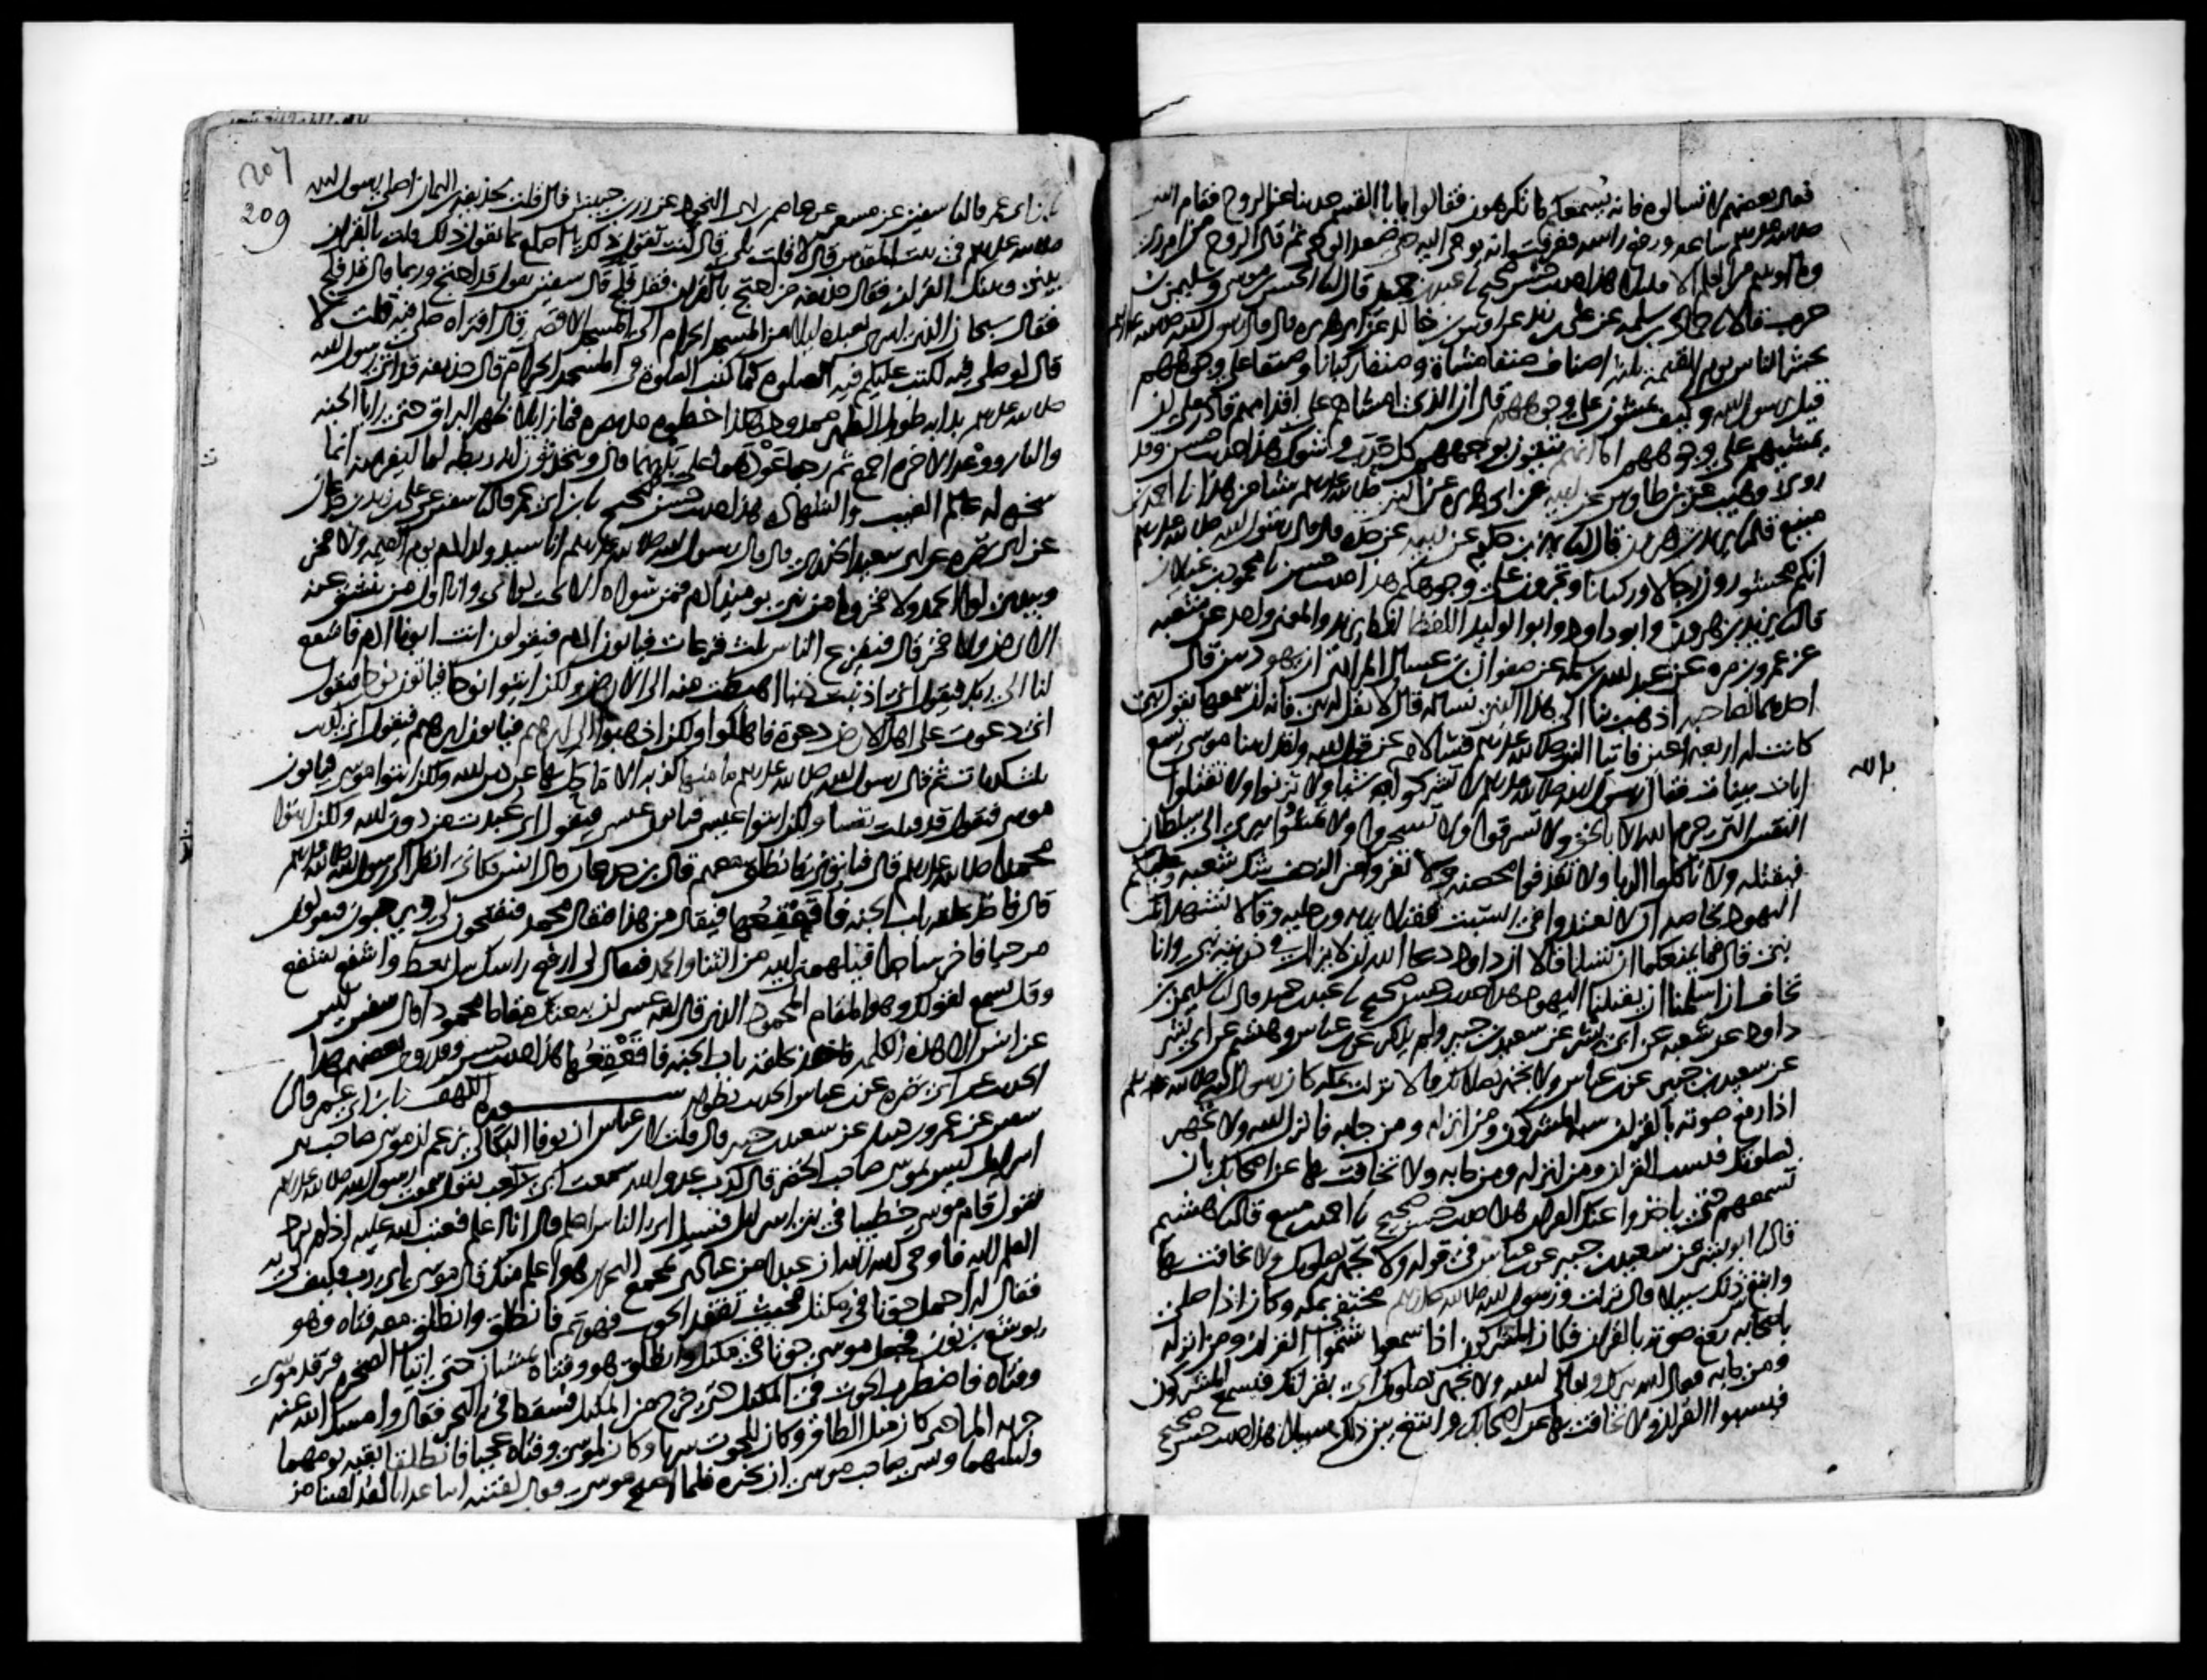 فقال بعضهم لا تسالوه فانه يسمعكم ما تكرهون فقالوا يا ابا القسم حدثنا عن الروح فقام النبي
صلى الله عليه وسلم ساعة ورفع راسه فعرفت انه يوحى اليه حتى صعد الوحي ثم قال الروح من امر ربي
وما اوتيتم من العلم الا قليلا هذا حديث حسن صحيح نا عبد بن حميد قال نا الحسن بن موسى وسليمن بن
حرب قالا نا حماد بن سلمة عن علي بن زيد عن اوس بن خالد عن ابي هريرة قال قال رسول الله صلى الله عليه وسلم
يحشر الناس يوم القيمة ثلثة اصناف صنفا مشاة وصنفا ركبانا وصنفا على وجوههم
قيل يرسول الله وكيف يمشون على وجوههم قال ان الذي امشاهم على اقدامهم قادر على ان
يمشيهم على وجوههم اما انهم يتقون بوجوههم كل حدب وشوك هذا حديث حسن وقد
روى وهيب عن ابن طاوس عن ابيه عن ابي هريرة عن النبي صلى الله عليه وسلم شيا من هذا نا احمد بن
منيع قال نا يزيد بن هرون قال نا بهز بن حكيم عن ابيه عن جده قال قال رسول الله صلى الله عليه وسلم
انكم محشورون رجالا وركبانا وتجرون على وجوهكم هذا حديث حسن نا محمود بن غيلان
قال نا يزيد بن هرون وابو داود وابو الوليد اللفظ لفظ يزيد والمعنى واحد عن شعبة
عن عمرو بن مرة عن عبد الله بن سلمة عن صفوان بن عسال المرادي ان يهوديين قال
احدهما لصاحبه اذهب بنا الى هذا النبي نساله قال لا تقل له نبي فانه ان سمعها تقول نبي
كانت له اربعة اعين فاتيا النبي صلى الله عليه وسلم فسالاه عن قول الله ولقد اتينا موسى تسع
ايات بينات فقال رسول الله صلى الله عليه وسلم لا تشركوا بالله شيا ولا تزنوا ولا تقتلوا
النفس التي حرم الله الا بالحق ولا تسرقوا ولا تسحروا ولا تمشوا ببري الى سلطان
فيقتله ولا تاكلوا الربا ولا تقذفوا محصنة ولا تفروا من الزحف شك شعبة وعليكم
اليهود خاصة ان لا تعتدوا في السبت فقبلا يديه ورجليه وقالا نشهد انك
نبي قال فما يمنعكما ان تسلما قالا ان داود دعا الله ان لا يزال في ذريته نبي وانا
نخاف ان اسلمنا ان تقتلنا اليهود هذا حديث حسن صحيح نا عبد بن حميد قال نا سليمن بن
داود عن شعبة عن ابي بشر عن سعيد بن جبير ولم يذكر عن ابن عباس وهشيم عن ابي بشر
عن سعيد بن جبير عن ابن عباس ولا تجهر بصلاتك قال نزلت بمكة كان رسول الله صلى الله عليه وسلم
اذا رفع صوته بالقران سبه المشركون ومن انزله ومن جا به فانزل الله ولا تجهر
بصلوتك فيسب القران ومن انزله ومن جا به ولا تخافت بها عن اصحابك بان
تسمعهم حتى ياخذوا عنك القران هذا حديث حسن صحيح نا احمد بن منيع قال نا هشيم
قال نا ابو بشر عن سعيد بن جبير عن ابن عباس في قوله ولا تجهر بصلوتك ولا تخافت بها
وابتغ بين ذلك سبيلا قال نزلت ورسول الله صلى الله عليه وسلم مختف بمكة وكان اذا صلى
باصحابه رفع صوته بالقران فكان المشركون اذا سمعوا شتموا القران ومن انزله
ومن جا به فقال الله تبارك وتعالى لنبيه ولا تجهر بصلوتك اي بقراتك فيسمع المشركون
فيسبوا القران ولا تخافت بها عن اصحابك وابتغ بين ذلك سبيلا هذا حديث حسن صحيح
207
209
نا ابن ابي عمر قال نا سفين عن مسعر عن عاصم بن ابي النجود عن زر بن حبيش قال قلت لحذيفة بن اليمان اصلى رسول الله
صلى الله عليه وسلم في بيت المقدس قال لا قلت بلى قال انت تقول ذلك يا اصلع بما تقول ذلك قلت بالقران
بيني وبينك القران فقال حذيفة من احتج بالقران فقد فلج قال سفين يقول قد احتج وربما قال قد فلج
فقال سبحان الذي اسرى بعبده ليلا من المسجد الحرام الى المسجد الاقصى قال افتراه صلى فيه قلت لا
قال لو صلى فيه لكتبت عليكم فيه الصلوة كما كتبت الصلوة في المسجد الحرام قال حذيفة قد اتي رسول الله
صلى الله عليه وسلم بدابة طويلة الظهر ممدودة هكذا خطوه مد بصره فما زايلا ظهر البراق حتى رايا الجنة
والنار ووعد الاخرة اجمع ثم رجعا عودهما على بدئهما قال ويتحدثون انه ربطه لما ليفر منه انما
سخره له عالم الغيب والشهادة هذا حديث حسن صحيح نا ابن ابي عمر قال نا سفين عن علي بن زيد بن جدعان
عن ابي نضرة عن ابي سعيد الخدري قال قال رسول الله صلى الله عليه وسلم انا سيد ولد ادم يوم القيمة ولا فخر
وبيدي لوا الحمد ولا فخر وما من نبي يومئذ ادم فمن سواه الا تحت لوائي وانا اول من تنشق عنه
الارض ولا فخر قال فيفزع الناس ثلث فزعات فياتون ادم فيقولون انت ابونا ادم فاشفع
لنا الى ربك فيقول اني اذنبت ذنبا اهبطت منه الى الارض ولكن ايتوا نوحا فياتون نوحا فيقول
اني دعوت على اهل الارض دعوة فاهلكوا ولكن اذهبوا الى ابرهيم فياتون ابرهيم فيقول اني كذبت
ثلث كذبات ثم قال رسول الله صلى الله عليه وسلم ما منها كذبة الا ماحل بها عن دين الله ولكن ايتوا موسى فياتون
موسى فيقول قد قتلت نفسا ولكن ايتوا عيسى فياتون عيسى فيقول اني عبدت من دون الله ولكن ايتوا
محمدا صلى الله عليه وسلم قال فياتوني فانطلق معهم قال ابن جدعان قال انس فكاني انظر الى رسول الله صلى الله عليه وسلم
قال فاخذ بحلقة باب الجنة فاقعقعها فيقال من هذا فيقال محمد فيفتحون لي ويرحبون فيقولون
مرحبا فاخر ساجدا فيلهمني الله من الثنا والحمد فيقال لي ارفع راسك سل تعط واشفع تشفع
وقل يسمع لقولك وهو المقام المحمود الذي قال الله عسى ان يبعثك ربك مقاما محمودا قال سفين ليس
عن انس الا هذه الكلمة فاخذ بحلقة باب الجنة فاقعقعها هذا حديث حسن وقد روى بعضهم هذا
الحديث عن ابي نضرة عن ابن عباس الحديث بطوله سورة الكهف نا ابن ابي عمر قال نا
سفين عن عمرو بن دينار عن سعيد بن جبير قال قلت لابن عباس ان نوفا البكالي يزعم ان موسى صاحب بني
اسرايل ليس بموسى صاحب الخضر قال كذب عدو الله سمعت ابي بن كعب يقول سمعت رسول الله صلى الله عليه وسلم
يقول قام موسى خطيبا في بني اسرايل فسيل اي الناس اعلم قال انا اعلم فعتب الله عليه اذ لم يرد
العلم اليه فاوحى الله اليه ان عبدا من عبادي بمجمع البحرين هو اعلم منك قال موسى اي رب فكيف لي به
فقال له احمل حوتا في مكتل فحيث تفقد الحوت فهو ثم فانطلق وانطلق معه فتاه وهو
يوشع بن نون فجعل موسى حوتا في مكتل وانطلق هو وفتاه يمشيان حتى اتيا الصخرة فرقد موسى
وفتاه فاضطرب الحوت في المكتل حتى خرج من المكتل فسقط في البحر فقال وامسك الله عنه
جرية الما حتى كان مثل الطاق وكان للحوت سربا وكان لموسى وفتاه عجبا فانطلقا بقية يومهما
وليلتهما ونسي صاحب موسى ان يخبره فلما اصبح موسى قال لفتاه اتنا غدانا لقد لقينا من